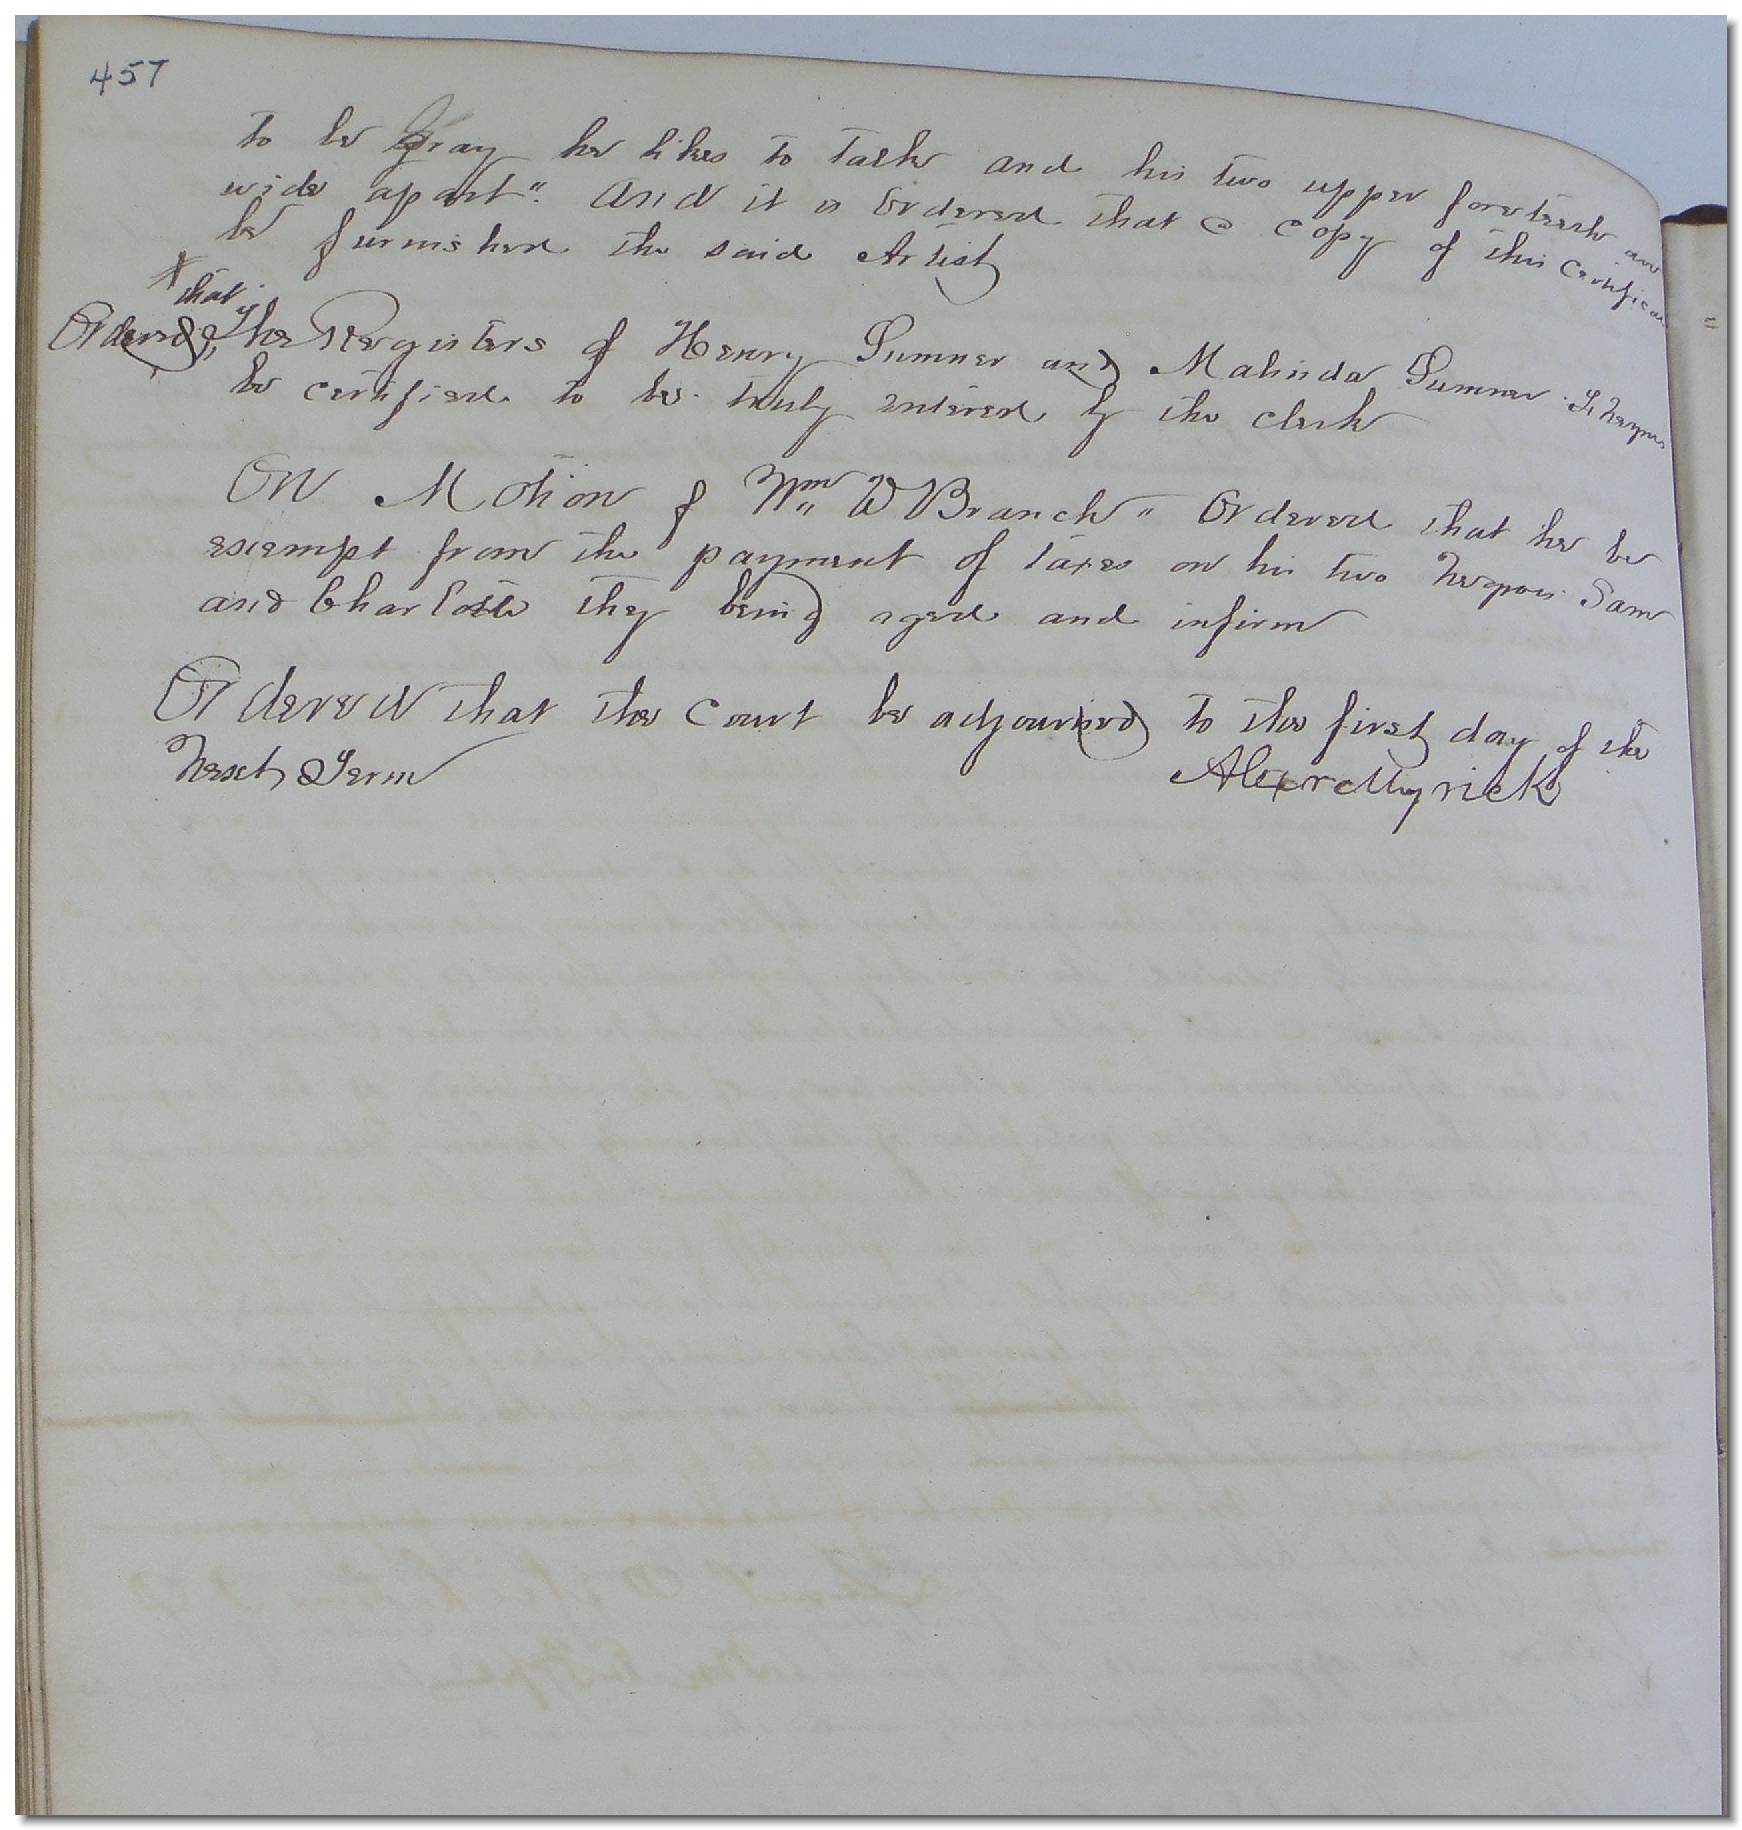 457
to be Gray he likes to talk and his two upper foreteeth are
wide apart". And it is Ordered that a copy of this Certificate
be furnished the said Artist
that
Ordered, the Registers of Henry Sumner and Malinda Sumner Fr Negroes
be certified to be truly entered by the clerk
On Motion of Wm W Branch" Ordered that he be
exempt from the payment of taxes on his two Negroes Sam
and Charlotte they being aged and infirm
Ordered that the Court be adjourned to the first day of the
Next Term
Alexr Myrick